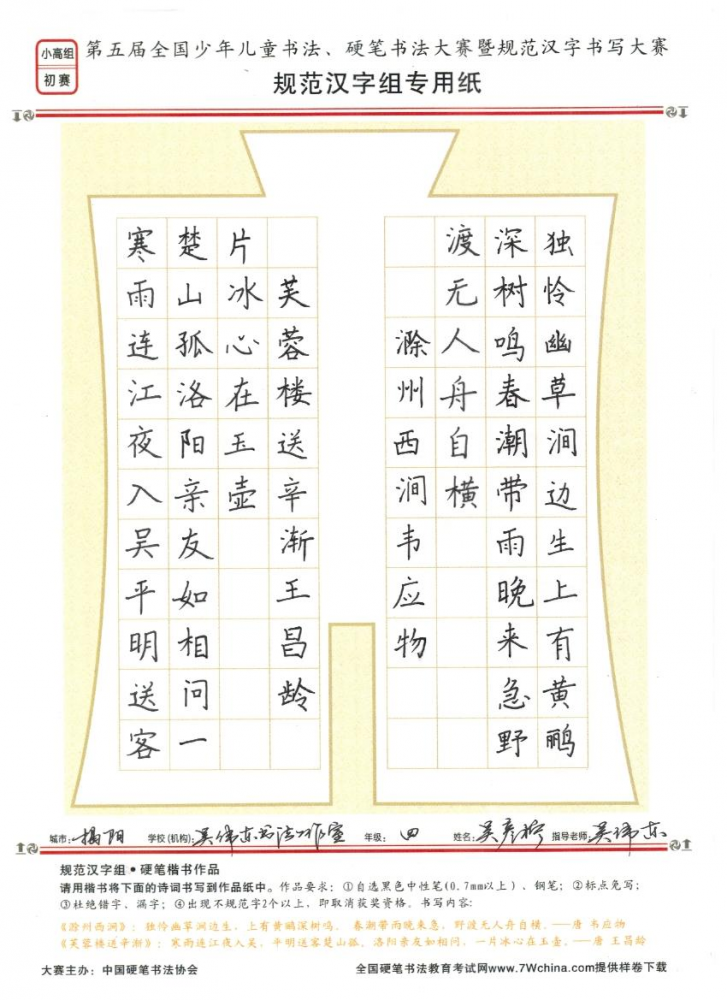 小高组
初赛
第五届全国少年儿童书法、硬笔书法大赛暨规范汉字书写大赛
规范汉字组专用纸
独怜幽草涧边生上有黄鹂
深树鸣春潮带雨晚来急野
渡无人舟自横
滁州西涧韦应物
寒雨连江夜入吴平明送客
楚山孤洛阳亲友如相问一
片冰心在玉壶
芙蓉楼送辛渐王昌龄
城市：揭阳 学校(机构)：吴伟东书法工作室 年级：四 姓名：吴彦 指导老师：吴伟东
规范汉字组•硬笔楷书作品
请用楷书将下面的诗词书写到作品纸中。作品要求：①自选黑色中性笔(0.7mm以上)、钢笔；②标点免写；
③杜绝错字、漏字；④出现不规范字2个以上，即取消获奖资格。书写内容：
《滁州西涧》：独怜幽草涧边生，上有黄鹂深树鸣。春潮带雨晚来急，野渡无人舟自横。——唐 韦应物
《芙蓉楼送辛渐》：寒雨连江夜入吴，平明送客楚山孤。洛阳亲友如相问，一片冰心在玉壶。——唐 王昌龄
大赛主办：中国硬笔书法协会 全国硬笔书法教育考试网www.7Wchina.com提供样卷下载